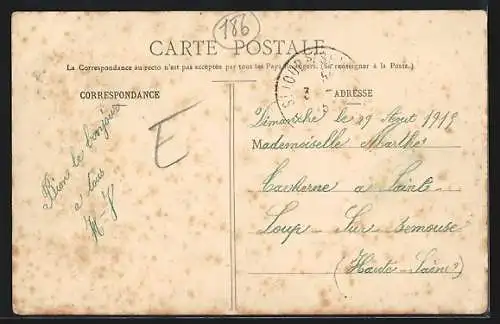 186
CARTE POSTALE
La Correspondance au recto n'est pas acceptée par tous les Pays étrangers. (Se renseigner à la Poste.)
CORRESPONDANCE
ADRESSE
E
Bien le bonjour
a tous
Dimanche le 29 Aout 1915
Mademoiselle Marthe
a Saint-
Loup-Sur Semouse
(Haute-Saône)